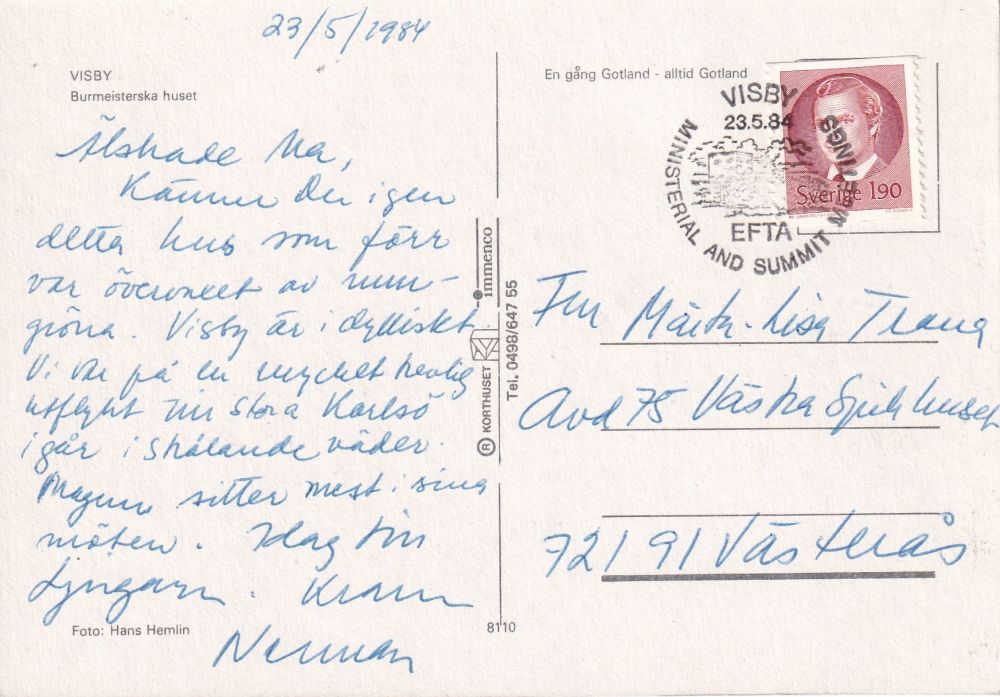 23/5/1984
VISBY
Burmeisterska huset
Älskade Ma,
Känner Du igen
detta hus som förr
var övervuxet av mur-
gröna. Visby är idylliskt.
Vi var på en mycket trevlig
utflykt till Stora Karlsö
igår i strålande väder.
sitter mest i sina
möten. Idag till
Ljugarn. Kram
En gång Gotland - alltid Gotland
VISBY
23.5.84
EFTA
MINISTERIAL AND SUMMIT MEETINGS
Sverige 190
immenco
® KORTHUSET
Tel. 0498/647 55
Fru Märta-Lisa
Avd 75 Västra Sjukhuset
721 91 Västerås
Foto: Hans Hemlin
8110